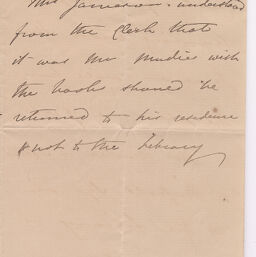 Mrs Jameson understood
from the Clerk that
it was Mr Mudies wish
the books should be
returned to his residence
& not to the Library